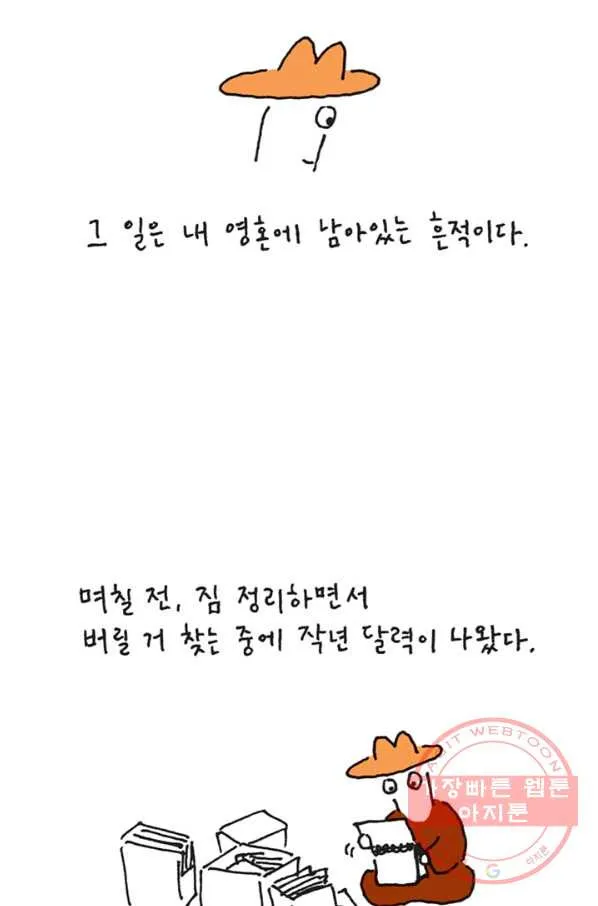 그 일은 내 영혼에 남아있는 흔적이다.
며칠 전, 짐 정리하면서
버릴 거 찾는 중에 작년 달력이 나왔다.
WEBTOON
장빠른 웹툰
아지툰
아지툰
G